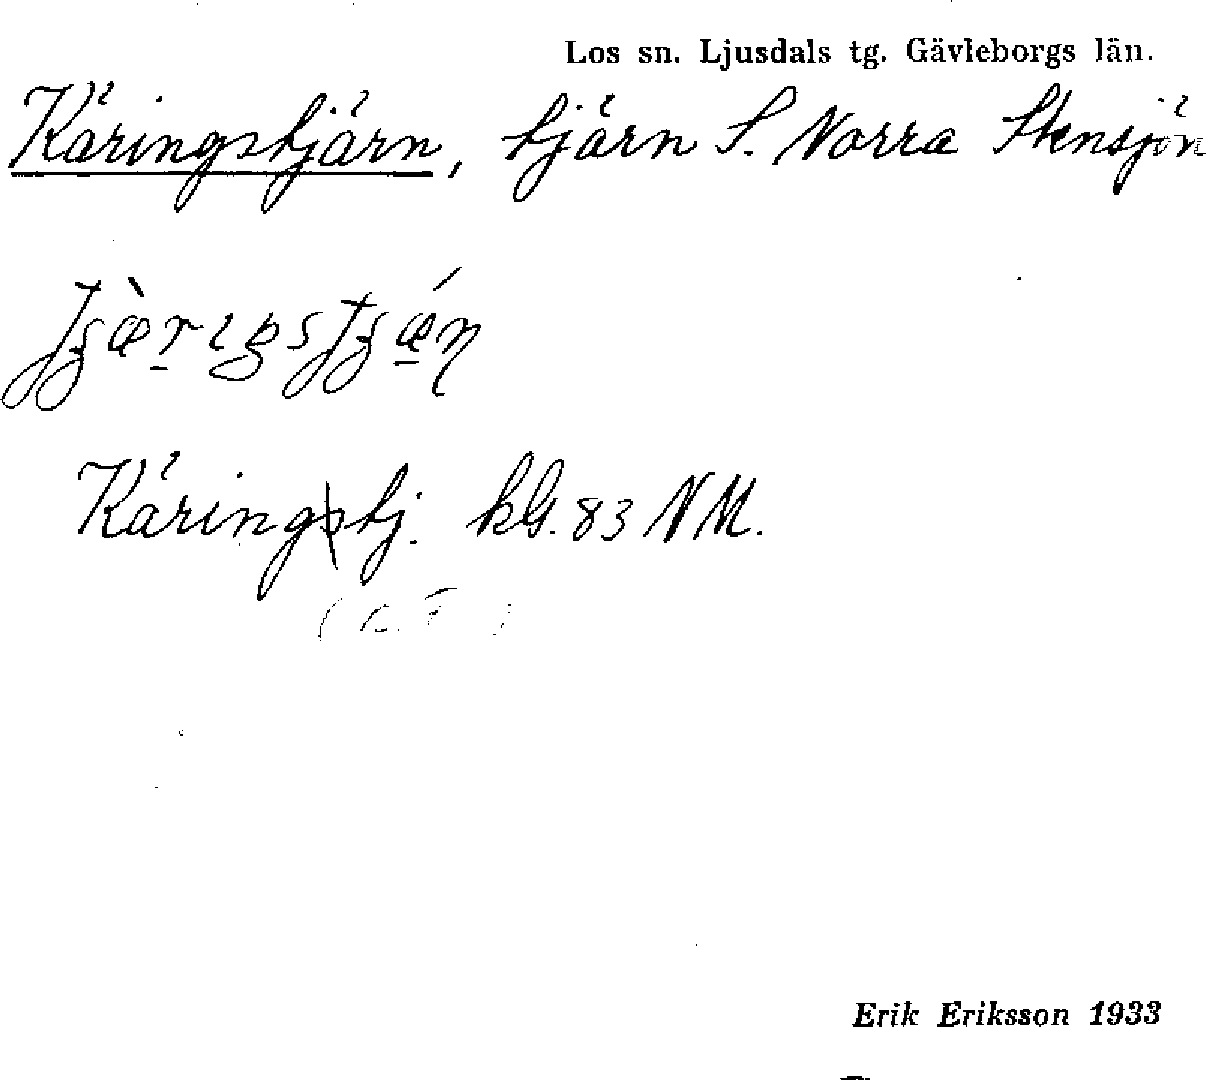 Los sn. Ljusdals tg. Gävleborgs län.
Käringstjärn, tjärn S. Norra Stensjön
Käringstj. kbl. 83 NM.
Erik Eriksson 1933